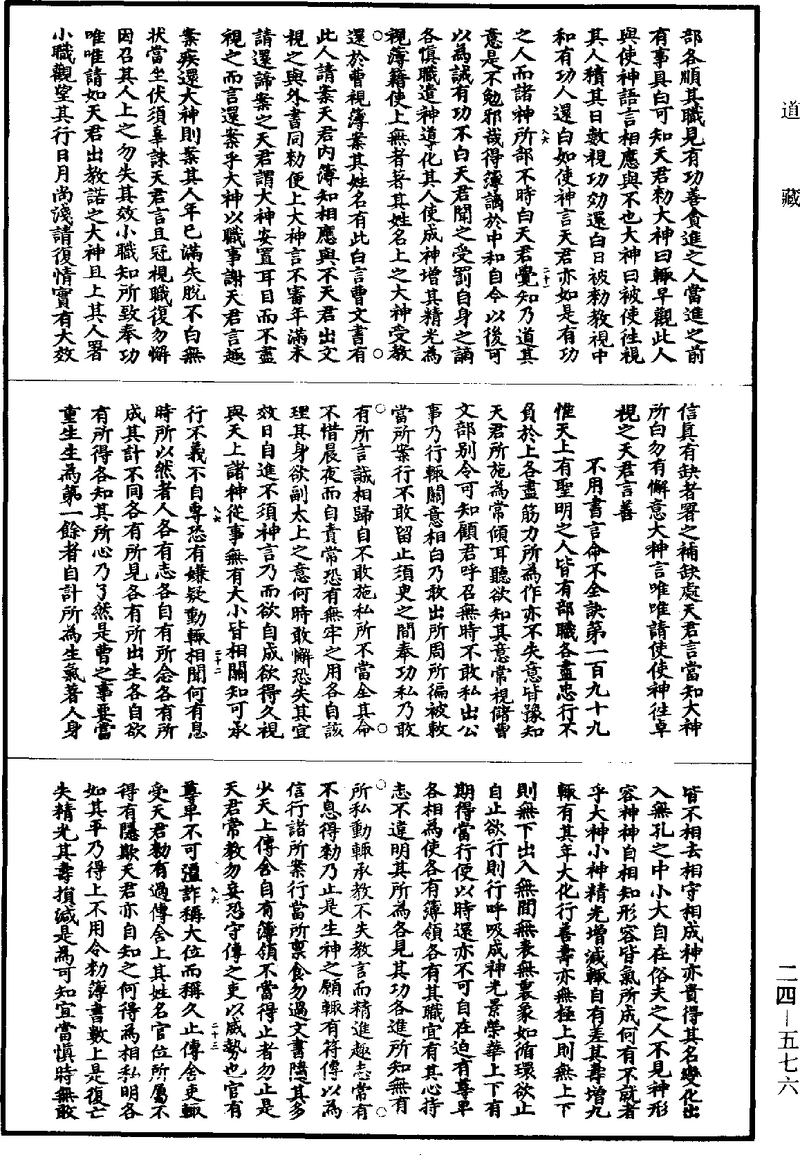 道藏
部各順其職見有功善貪進之人當進之前
有事具白可知天君勑大神曰輒早觀此人
與使神語言相應與不也大神曰被使往視
其人積其日數視功効還白日被勑教視中
和有功人還白如使神言天君亦如是有功
之人而諸神所部不時白天君覺知乃道其
意是不勉邪哉得簿謫於中和自今以後可
以為誡有功不白天君聞之受罰自身之謫
各慎職遣神導化其人使成神增其精光為
視簿籍使上無者著其姓名上之大神受教
還於曹視簿案其姓名有此白言曹文書有
此人請案天君內簿知相應與不天君出文
視之與外書同勑便上大神言不審年滿未
請還諦案之天君謂大神安置耳目而不盡
視之而言還案乎大神以職事謝天君言趣
案疾還大神則案其人年已滿失脫不白無
狀當坐伏須辜誅天君言且冠視職復勿懈
因召其人上之勿失其效小職知所致奉功
唯唯請如天君出教諾之大神且上其人署
小職觀望其行日月尚淺請復情實有大效
信真有缺者署之補缺處天君言當知大神
所白勿有懈意大神言唯唯請使使神往卓
視之天君言善
不用書言命不全訣第一百九十九
惟天上有聖明之人皆有部職各盡忠行不
負於上各盡筋力所為作亦不失意皆豫知
天君所施為常傾耳聽欲知其意常視儲曹
文部別令可知顧君呼召無時不敢私出公
事乃行輒關意相白乃敢出所周所徧被敕
當所案行不敢留止須臾之間奉功私乃敢
有所言誡相歸自不敢施私所不當全其命
不惜晨夜而自責常恐有無牢之用各自該
理其身欲副太上之意何時敢懈恐失其宜
效日自進不須神言乃而欲自成欲得久視
與天上諸神從事無有大小皆相關知可承
行不義不自專恐有嫌疑動輒相聞何有息
時所以然者人各有志各自有所念各有所
成其計不同各有所見各有所出生各自欲
有所得各知其所心乃了然是曹之事要當
重生生為第一餘者自計所為生氣著人身
皆不相去相守相成神亦貴得其名變化出
入無孔之中小大自在俗夫之人不見神形
容神神自相知形容皆氣所成何有不就者
乎大神小神精光增減輒自有差其壽增九
輒有其年大化行善壽亦無極上則無上下
則無下出入無間無表無裏象如循環欲止
自止欲行則行呼吸成神光景榮華上下有
期得當行便以時還亦不可自在迫有尊卑
各相為使各有簿領各有其職宜有其心持
志不違明其所為各見其功各進所知無有
所私動輒承教不失教言而精進趣志常有
不息得勑乃止是生神之願輒有符傳以為
信行諸所案行當所稟食勿過文書隨其多
少天上傳舍自有簿領不當得止者勿止是
天君常教勿妄恐守傳之吏以威勢也官有
尊卑不可彊詐稱大位而稱久止傳舍吏輒
受天君勑有過傳舍上其姓名官位所屬不
得有隱欺天君亦自知之何得為相私明各
如其平乃得上不用令勑簿書數上是復亡
失精光其壽損減是為可知宜當慎時無敢
二四—五七六